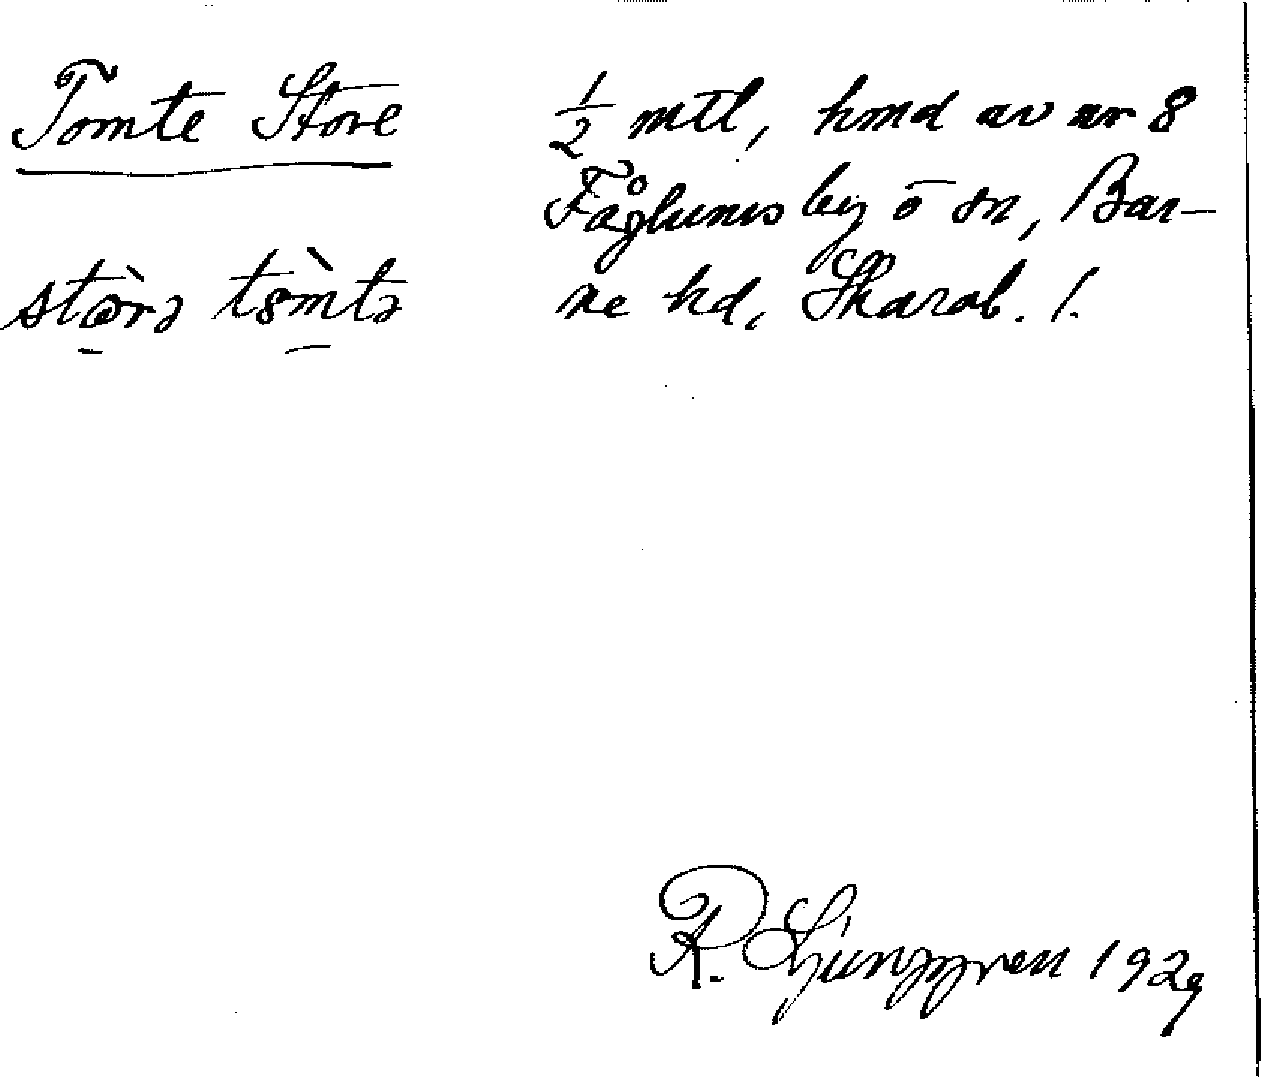 Tomte Store
stòrə tòmtə
1/2 mtl, hmd av nr 8
Fåglums by o sn, Bar-
ne hd, Skarab. l.
R. Ljunggren 1929